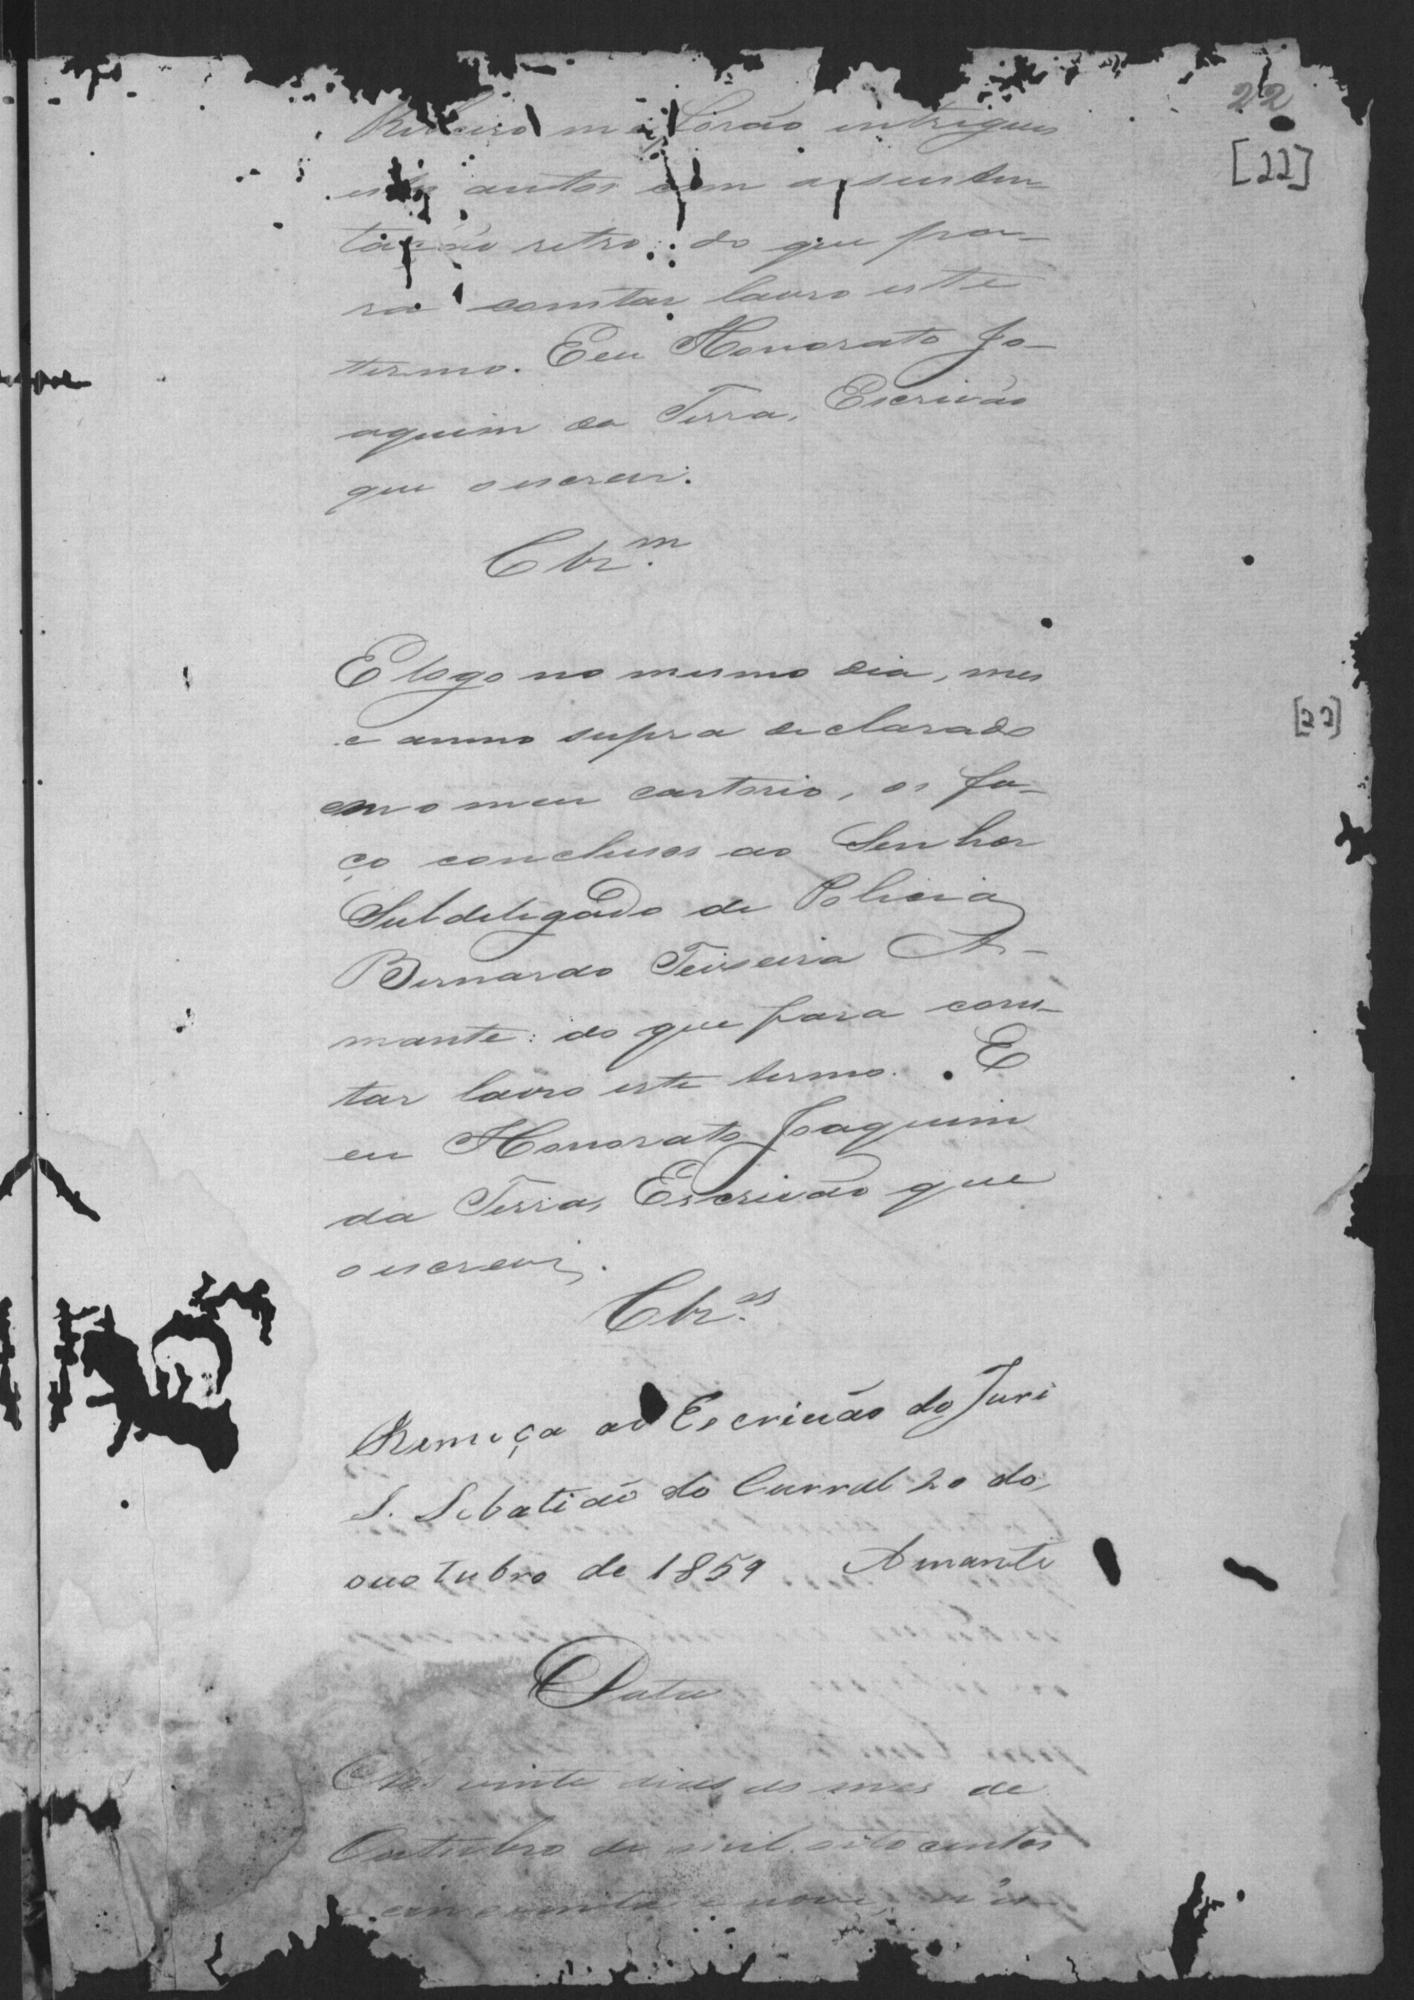 22
[22]
Ribeiro me forão entregues
estes autos com a susten-
tação retro: do que pa-
ra constar lavro este
termo. Eeu Honorato Jo-
aquim da Terra, Escrivão
que o escrevi.
Clz.m
E logo no mesmo dia, mes
e anno supra declarado
em o meu cartorio, os fa-
ço conclusos ao Senhor
Subdelegado de Policia
Bernardo Teixeira A-
mante: do que para cons-
tar lavro este termo. E
eu Honorato Joaquim
da Terra, Escrivão que
o escrevi.
[22]
Clz.os
Remeça ao Escrivão do Juri
S. Sebatião do Curral 20 do
ouotubro de 1859 Amante
Data
Aos vinte dias do mes de
Outubro de mil oito centos
e cincoenta e nove,